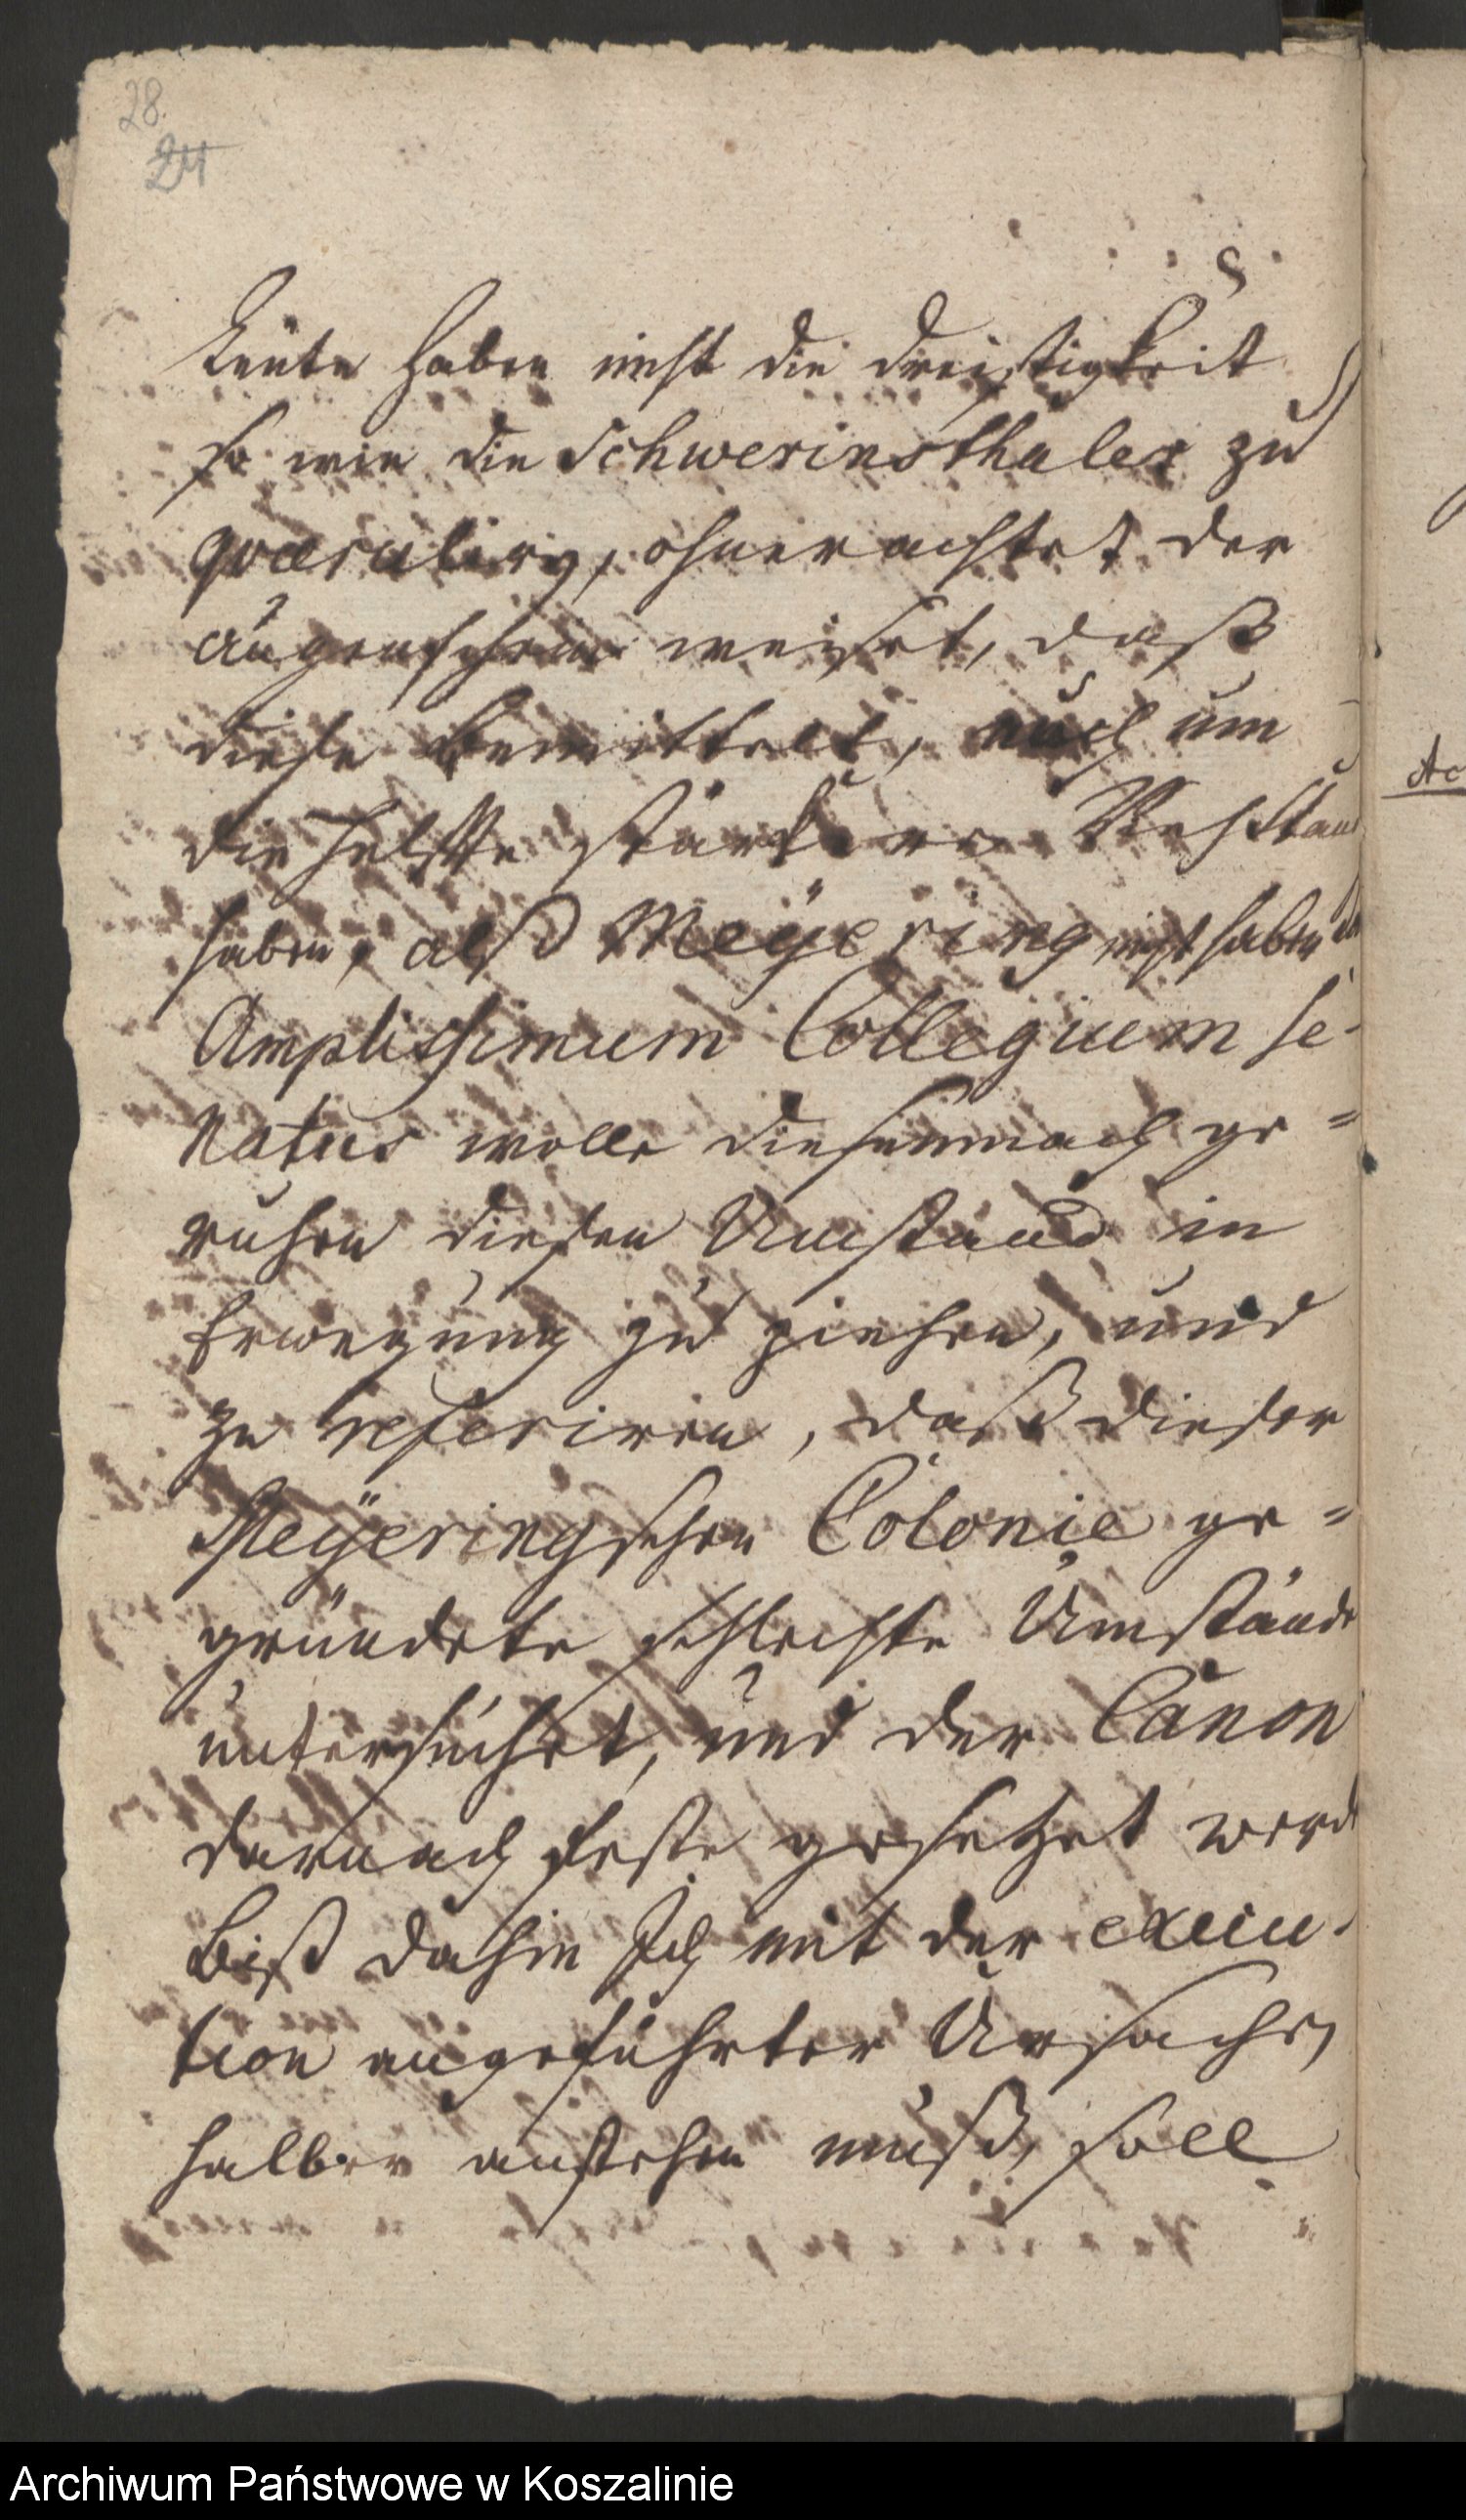 28.
24
Leute haben nicht die dreistigkeit
so wie die Schwerinsthaler zu
qværuliren, ohnerachtet der
augenschein weiset, daß
diese bemittelt, auch um
die helffte stärkeren Viehstand
haben, alß Meÿering nicht haben
Amplissimum Collegium Se-
natus wolle diesemnach ge=
ruhen diesen Umstand in
Erwegung zu ziehen, und
zu referiren, daß dieser
Meÿeringschen Colonie ge=
gründete schlechte Umstände
untersuchet, und der Canon
darnach feste gesetzet werde
biß dahin ich mit der execu-
tion angeführter Ursachen
halber anstehen muß, soll
Ac
Archiwum Państwowe w Koszalinie